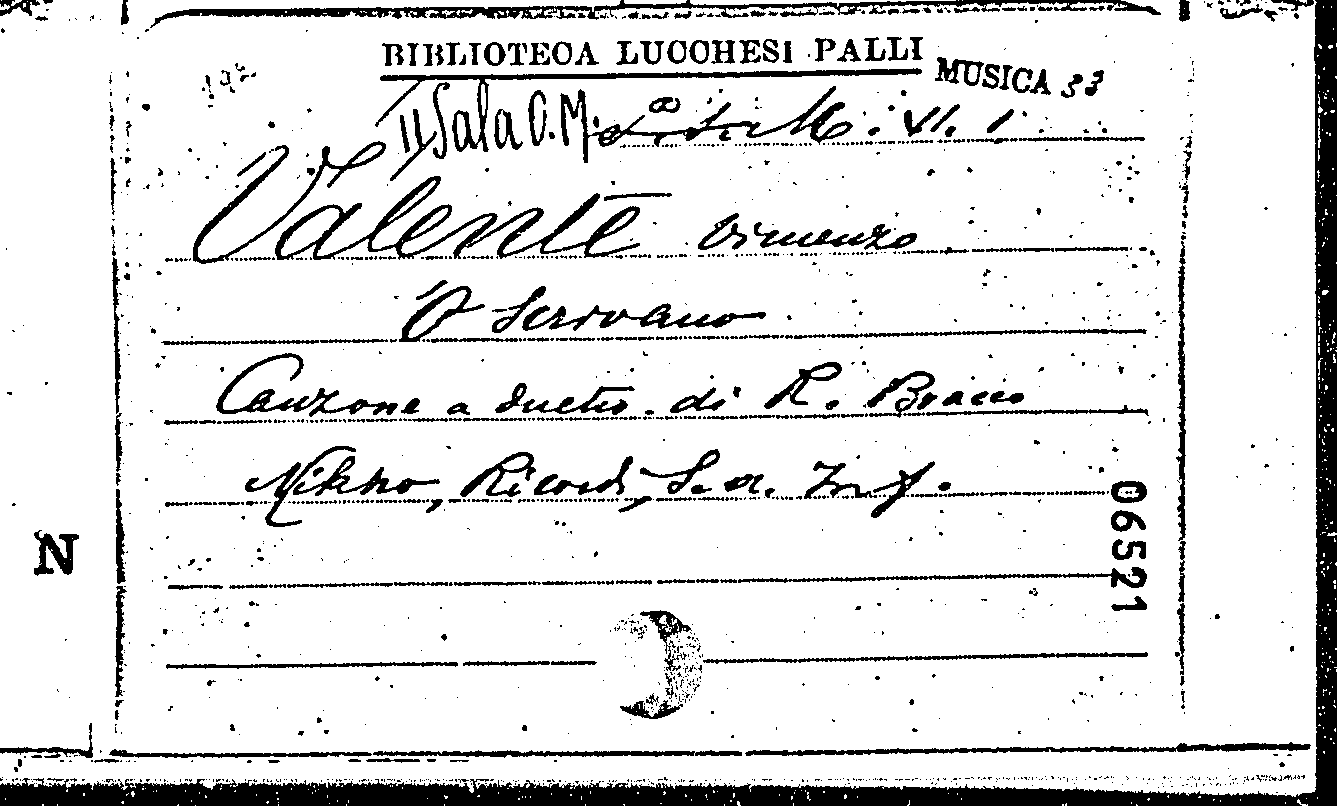 BIBLIOTECA LUCCHESI PALLI
MUSICA 33
192
II Sala O.M. VI. 1
Valente Vincenzo
'O Scrivano
Canzone a duetto. di R. Bracco
Milano, Ricordi, S. a. In f.
06521
N